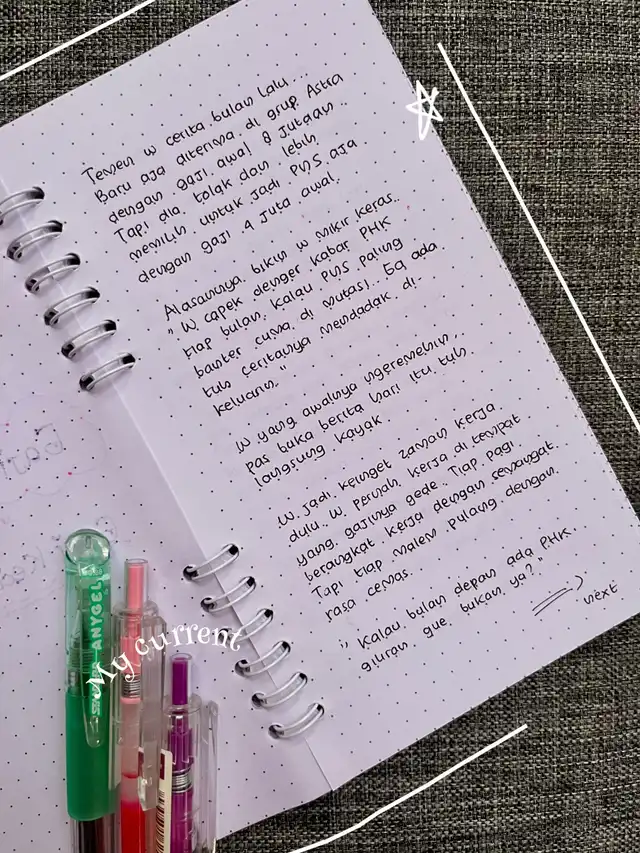 Temen w cerita bulan lalu...
Baru aja diterima di grup Astra
dengan gaji awal 8 jutaan..
Tapi dia tolak dan lebih
memilih untuk jadi PNS aja
dengan gaji 4 juta awal.
Alasannya bikin w mikir keras..
"W capek denger kabar PHK
tiap bulan, kalau PNS paling
banter cuma di mutasi.. Ga ada
tuh ceritanya mendadak di-
keluarin."
W yang awalnya ngeremehin,,
pas buka berita hari itu tuh
langsung kayak
W jadi keinget zaman kerja
dulu. W pernah kerja di tempat
yang gajinya gede. Tiap pagi
berangkat kerja dengan semangat
Tapi tiap malem pulang dengan
rasa cemas.
"Kalau bulan depan ada PHK..
giliran gue bukan, ya?"
next
ANYGEL
My current